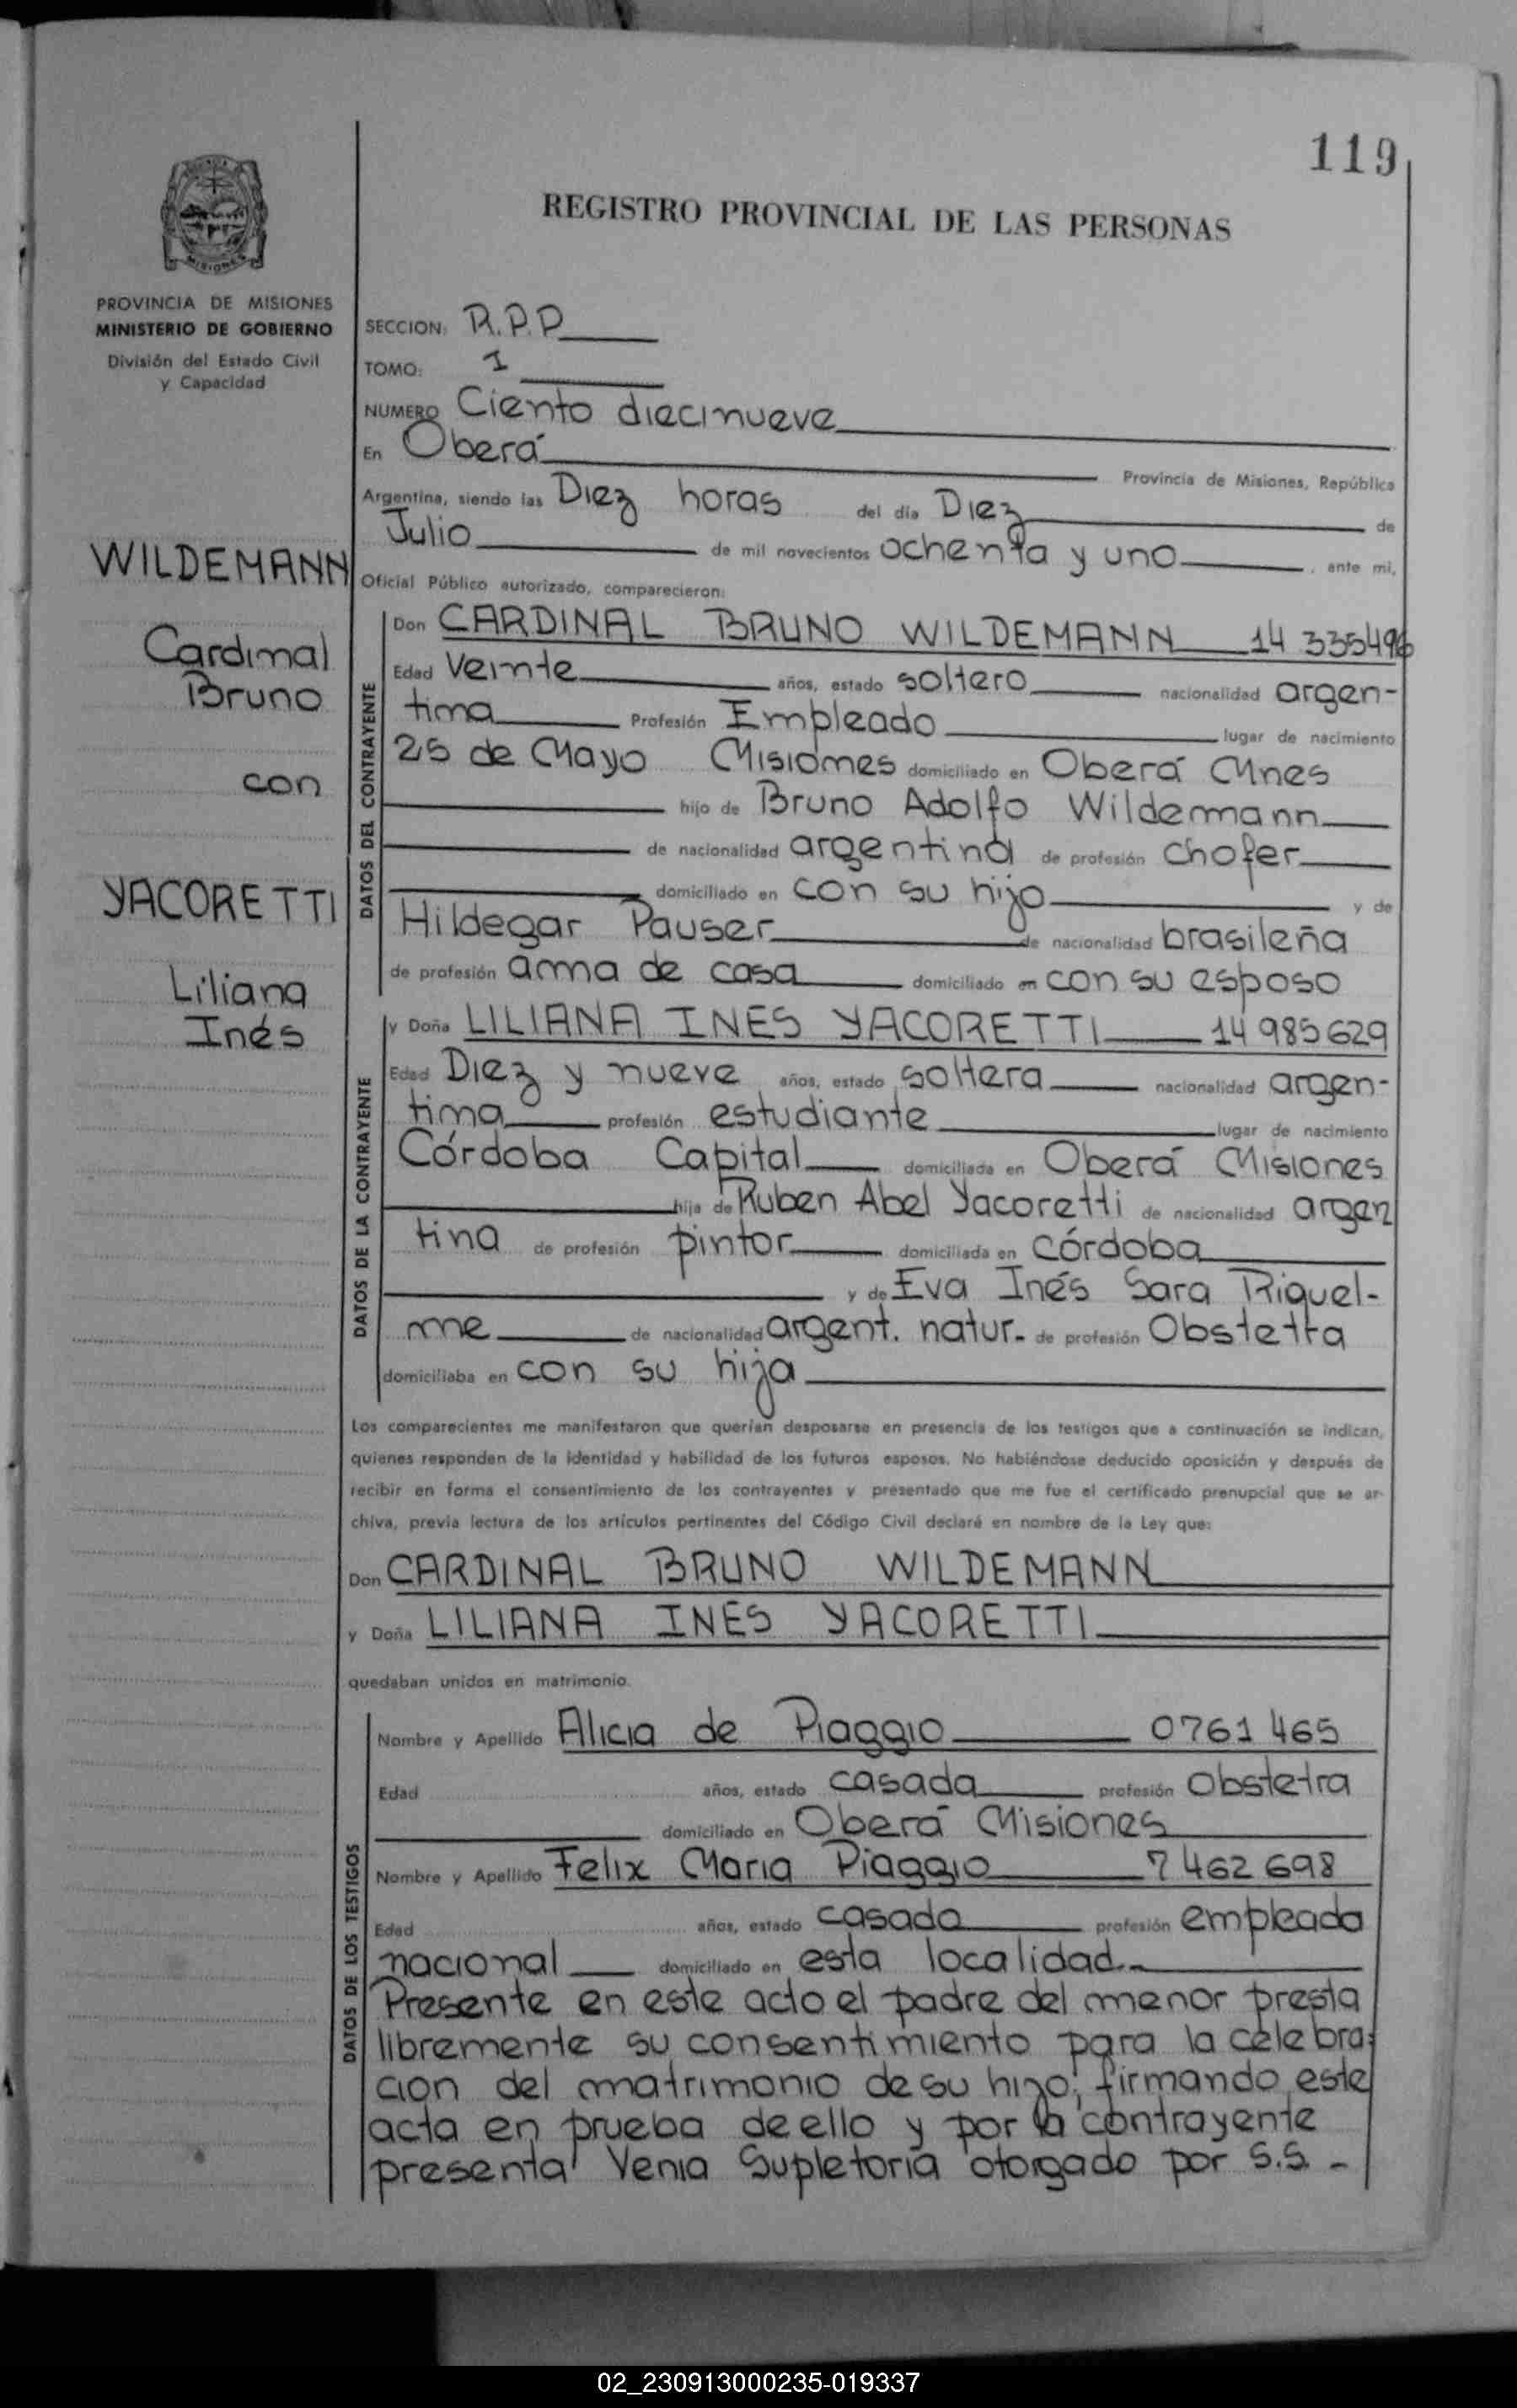 119
REGISTRO PROVINCIAL DE LAS PERSONAS
MISIONES
PROVINCIA DE MISIONES
MINISTERIO DE GOBIERNO
División del Estado Civil
y Capacidad
SECCION: R.P.P
TOMO: I
NUMERO Ciento diecinueve
En Oberá Provincia de Misiones, República
Argentina, siendo las Diez horas del día Diez de
Julio de mil novecientos ochenta y uno, ante mi,
Oficial Público autorizado, comparecieron:
WILDEMANN
Cardinal
Bruno
con
YACORETTI
Liliana
Inés
DATOS DEL CONTRAYENTE
Don CARDINAL BRUNO WILDEMANN 14 335496
Edad Veinte años, estado soltero nacionalidad argen-
tina Profesión Empleado lugar de nacimiento
25 de Mayo Misiones domiciliado en Oberá Mnes
hijo de Bruno Adolfo Wildemann
de nacionalidad argentina de profesión chofer
domiciliado en con su hijo y de
Hildegar Pauser de nacionalidad brasileña
de profesión ama de casa domiciliado en con su esposo
DATOS DE LA CONTRAYENTE
y Doña LILIANA INES YACORETTI 14 985629
Edad Diez y nueve años, estado soltera nacionalidad argen-
tina profesión estudiante lugar de nacimiento
Córdoba Capital domiciliada en Oberá Misiones
hija de Ruben Abel Yacoretti de nacionalidad argen
tina de profesión pintor domiciliada en córdoba
y de Eva Inés Sara Riquel-
me de nacionalidad argent. natur. de profesión Obstetra
domiciliaba en con su hija
Los comparecientes me manifestaron que querían desposarse en presencia de los testigos que a continuación se indican,
quienes responden de la identidad y habilidad de los futuros esposos. No habiéndose deducido oposición y después de
recibir en forma el consentimiento de los contrayentes y presentado que me fue el certificado prenupcial que se ar-
chiva, previa lectura de los artículos pertinentes del Código Civil declaré en nombre de la Ley que:
Don CARDINAL BRUNO WILDEMANN
y Doña LILIANA INES YACORETTI
quedaban unidos en matrimonio.
DATOS DE LOS TESTIGOS
Nombre y Apellido Alicia de Piaggio 0761465
Edad años, estado casada profesión Obstetra
domiciliado en Oberá Misiones
Nombre y Apellido Felix Maria Piaggio 7462698
Edad años, estado casado profesión empleado
nacional domiciliado en esta localidad.-
Presente en este acto el padre del menor presta
libremente su consentimiento para la celebra-
cion del matrimonio de su hijo, firmando este
acta en prueba de ello y por la contrayente
presenta Venia Supletoria otorgado por S.S. -
02_230913000235-019337